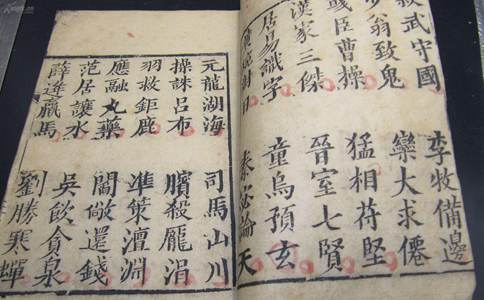 武守國 李牧備邊
翁致鬼 欒大求僊
彧臣曹操 猛相苻堅
漢家三傑 晉室七賢
居易識字 童烏預玄
對日 秦宓論天
元龍湖海 司馬山川
操誅呂布 臏殺龐涓
羽救鉅鹿 準策澶淵
應融丸藥 閻敞還錢
范居讓水 吳飲貪泉
薛逢羸馬 劉勝寒蟬